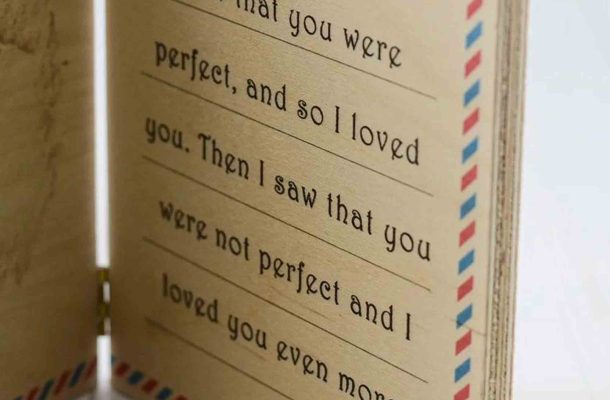 that you were
perfect, and so I loved
you. Then I saw that you
were not perfect and I
loved you even more